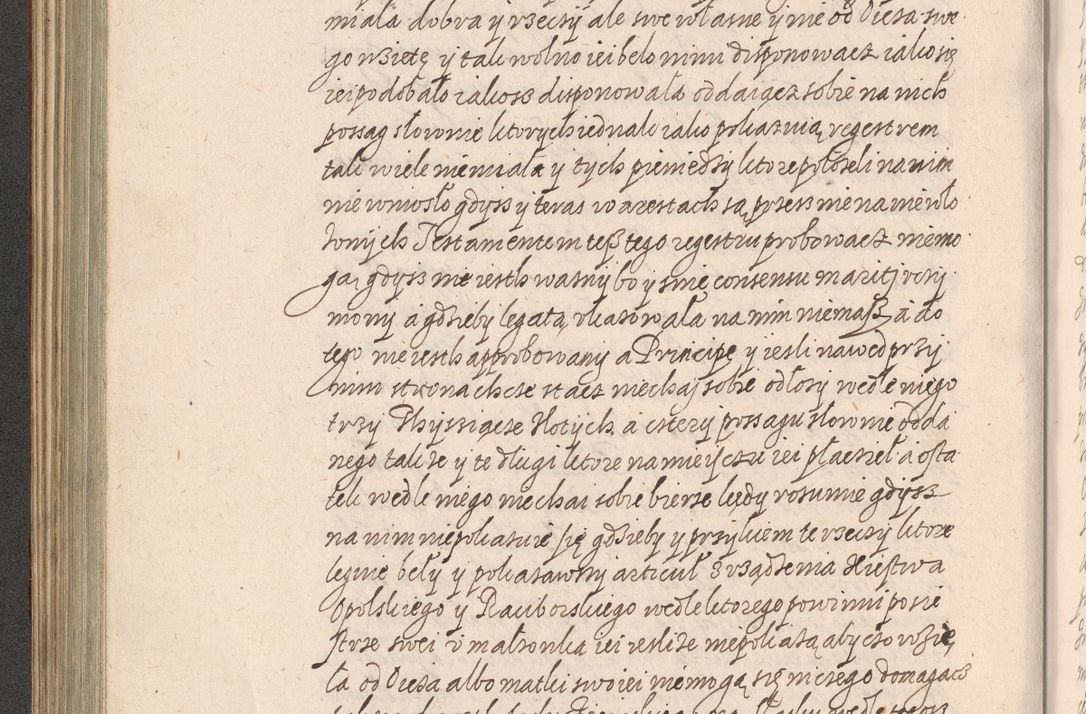 miała dobra y rzeczy ale swe własne y nie od Oicza swe
go wzietę y tak wolno iei beło nimi disponowacz iako się
iei podobało iakosz disponowała oddaiącz sobie na nich
possag słownie ktorych iednak iako pokazuią regestrem
tak wiele niemiała y tych pieniedzy ktore położeli na nim
niewniosło gdysz y teras w arestach są przess nie na nie wło
żonych Testamentem teß tego regestru probowacz niemo
gą gdysz nie iesth wasny bo y smię consensu mariti vczy
niony a gdzieby legatą vkazowała na nim niemaß a do
tego nie iesth approbowany a Principę y iesli nawed przy
nim stronach cze stacz niechaj sobie odłozy wedle niego
trzy Thysziącze złotych a cztery possagu słownie odda
nego takze y te dlugi ktore na mieisczu iei płacził a osta
tek wedle niego niechai sobie bierze kędy rosumie gdysz
na nim niepokazuie się gdzieby y przykiem te rzeczy ktore
legnie beły y pokazawszy articuł Zrządzenia Xięstwa
Opolskiego y Raciborskiego wedle ktorego powinni po sie
strze swei v małzonka iei ieslisze niepokażą aby czo wzię
ła od Oicza albo matki swoiei niemogą się niczego domagacz